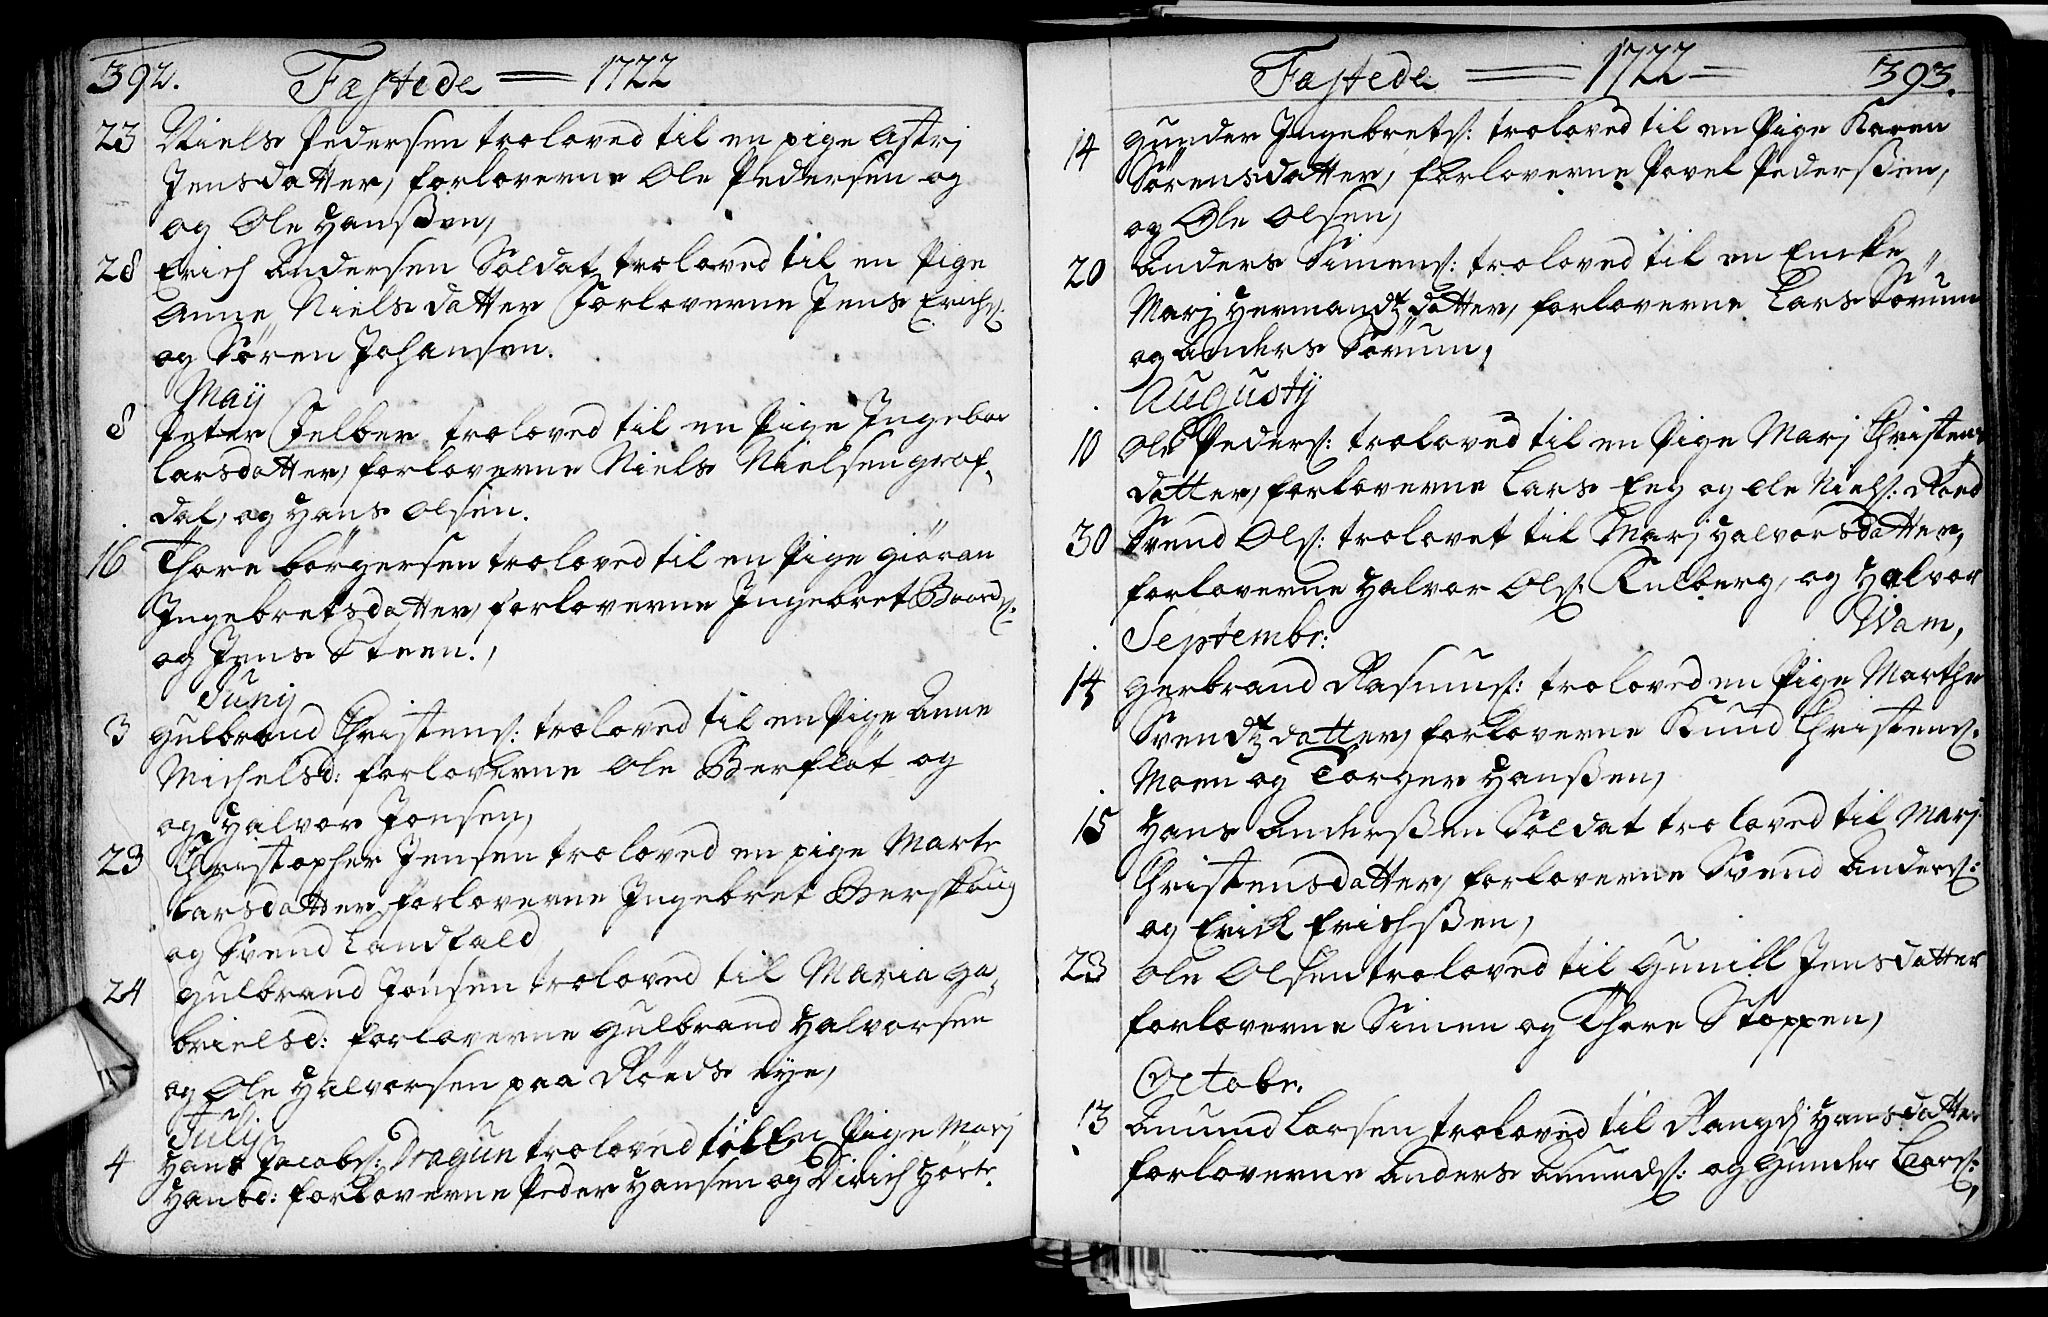 392. Fæstede = 1722
23 Niels Pedersen troloved til en pige Astrj
Jensdatter, forloverne Ole Pedersen og
og Ole Hanssen,
28 Erich Andersen Soldat troloved til en Pige
Anne Nielsdatter Forloverne Jens Erichs:
og Sören Johansen.
Maij
8 Peter Felber troloved til en Pige Ingebor
Larsdatter, forloverne Niels Nielsen grof-
dal, og Hans Olsen.
16 Thore börgersen troloved til en Pige giöran
Ingebretsdatter, forloverne Ingebret Baards:
og Jens Steen.,
Junij
3 gulbrand Christens: troloved til en Pige Anne
Michelsd: forloverne Ole Berflöt og
og Halvor Jonsen,
23 Christopher Jensen troloved en pige Marte
Larsdatter forloverne Ingebret Berskoug
og Svend Landfald
24 gulbrand Jonsen troloved til Maria ga-
brielsd: forloverne gulbrand Halvorsen
og Ole Halvorsen paa Röeds eye,
Julij
4 Hans Jacobs: Dragun troloved til En Pige Marj
Hansd: forloverne Peder Hansen og Dirich Hörte.
Fæstede = 1722 = 393.
14 gunder Ingebrets: troloved til en Pige Karen
Sörensdatter, forloverne Povel Pederssen,
og Ole Olsen,
20 Anders Simens: troloved til en Encke
Marj Hermandtz datter, forloverne Lars Sörum
og Anders Sörum,
Augustij
10 Ole Peders: troloved til en Pige Marj Christens
datter, forloverne Lars Eeg og Ole Niels: Röed
30 Svend Ols: trolovet til Marj Halvorsdatter,
forloverne Halvor Ols: Kulberg, og Halvor
Wam,
Septembr:
14 gerbrand Rasmus: troloved en Pige Marthe
Svendtz datter, forloverne Knud Christens.
Moen og Torger Hanssen,
15 Hans Anderssen Soldat troloved til Marj
Christensdatter, forloverne Svend Anders:
og Erick Erichssen,
23 Ole Olsen troloved til Gunill Jensdatter
forloverne Simen og Thore Stoppen,
Octobr.
13 Amund Larsen troloved til Rangdj Hansdatter
forloverne Anders Amunds: og Gunder Lars:,